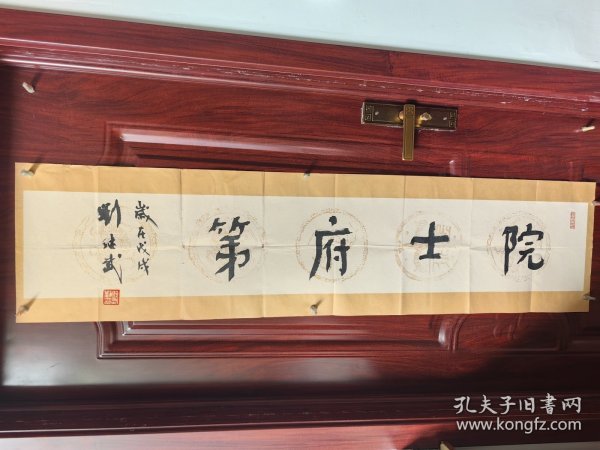 院士府第
歲在戊戌
劉
孔夫子旧書网
www.kongfz.com